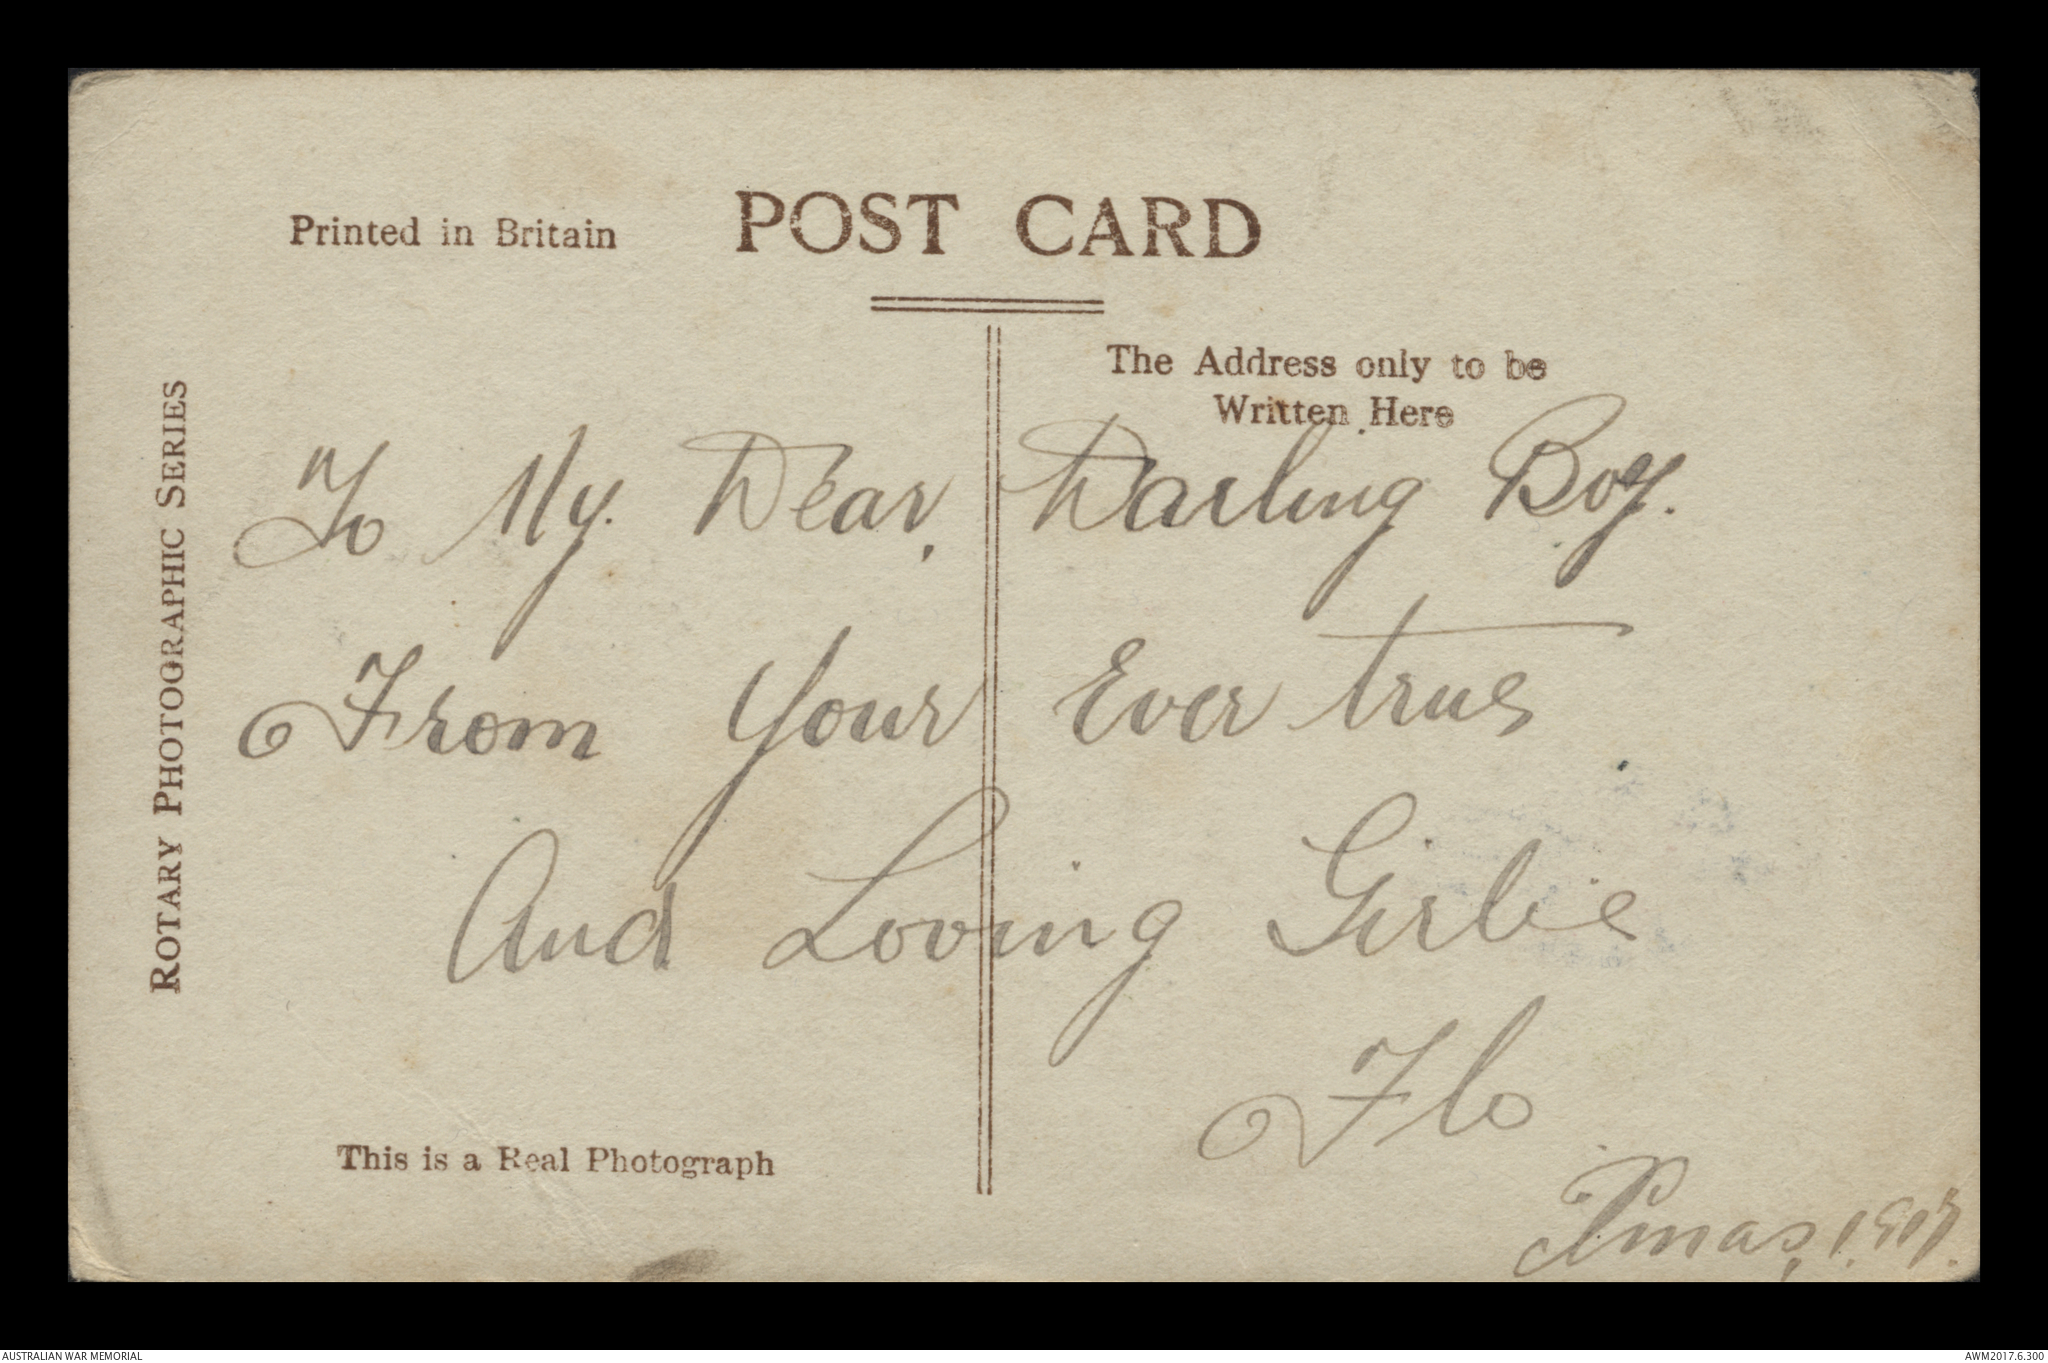 Printed in Britain
POST CARD
The Address only to be
Written Here
ROTARY PHOTOGRAPHIC SERIES
To My. Dear, Darling Boy.
From Your Ever true
And Loving Girlie
Flo
Xmas, 1917.
This is a Real Photograph
AUSTRALIAN WAR MEMORIAL
AWM2017.6.300